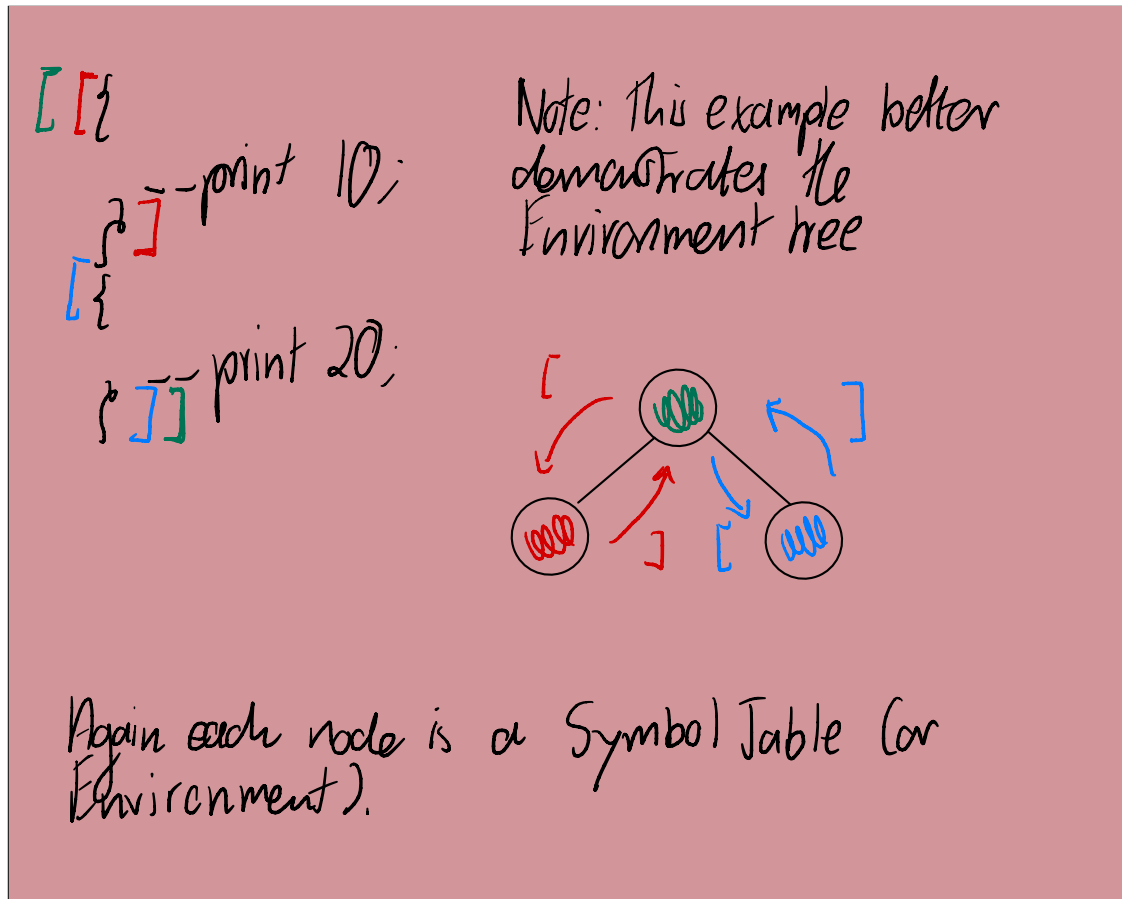 [ [ {
-- print 10;
} ]
[ {
-- print 20;
} ] ]
Note: This example better
demonstrates the
Environment tree
[
]
[
]
Again each node is a Symbol Table (or
Environment).